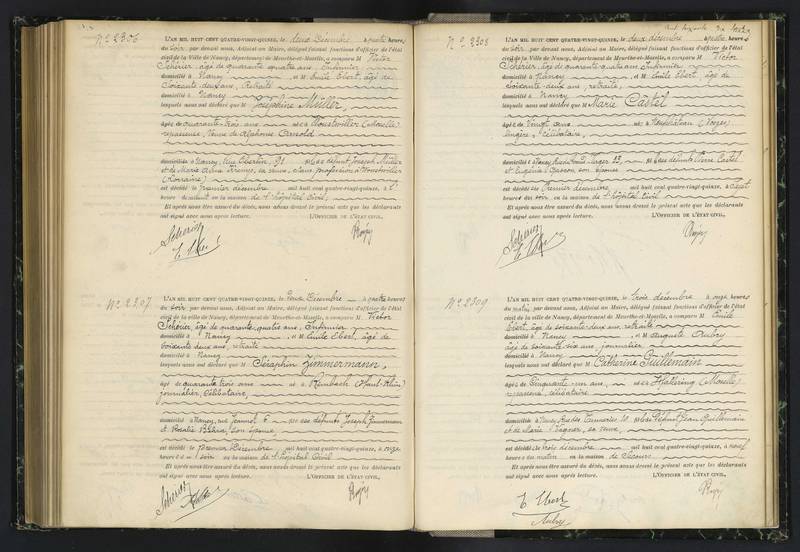 N° 2306
L'AN MIL HUIT CENT QUATRE-VINGT-QUINZE, le deux Décembre à quatre heures
du soir, par devant nous, Adjoint au Maire, délégué faisant fonctions d'officier de l'état
civil de la Ville de Nancy, département de Meurthe-et-Moselle, a comparu M Victor
Schérier, âgé de quarante quatre ans, Infirmier
domicilié à Nancy et M Emile Ebert, âgé de
soixante deux ans, Retraité
domicilié à Nancy
lesquels nous ont déclaré que M Joséphine Müller,
âgée de quarante-trois ans née à Woustwiller (Moselle)
repasseuse, Veuve de Alphonse Arnould
domiciliée à Nancy, Rue Charles, 91 fille de défunt Joseph Müller
et de Marie sa veuve, sans profession à Woustwiller
(Lorraine)
est décédée le premier décembre mil huit cent quatre-vingt-quinze, à
heure de minuit en la maison de l'hôpital Civil;
Et après nous être assuré du décès, nous avons dressé le présent acte que les déclarants
ont signé avec nous après lecture. L'OFFICIER DE L'ÉTAT CIVIL,
N° 2307
L'AN MIL HUIT CENT QUATRE-VINGT-QUINZE, le deux Décembre à quatre heures
du soir, par devant nous, Adjoint au Maire, délégué faisant fonctions d'officier de l'état
civil de la ville de Nancy, département de Meurthe-et-Moselle, a comparu M Victor
Schérier, âgé de quarante-quatre ans, Infirmier
domicilié à Nancy, et M Emile Ebert, âgé de
soixante deux ans, retraité
domicilié à Nancy
lesquels nous ont déclaré que M Séraphin Zimmermann,
âgé de quarante trois ans né à Rimbach (Haut-Rhin)
journalier, Célibataire,
domicilié à Nancy, rue Jeannot, 6 fils de défunts Joseph Zimmermann
et Rosalie son épouse,
est décédé le premier Décembre mil huit cent quatre-vingt-quinze, à onze
heures du soir en la maison de l'hôpital Civil
Et après nous être assuré du décès, nous avons dressé le présent acte que les déclarants
ont signé avec nous après lecture. L'OFFICIER DE L'ÉTAT CIVIL,
N° 2308
L'AN MIL HUIT CENT QUATRE-VINGT-QUINZE, le deux décembre à quatre heures
du soir, par devant nous, Adjoint au Maire, délégué faisant fonctions d'officier de l'état
civil de la ville de Nancy, département de Meurthe-et-Moselle, a comparu M Victor
Schérier, âgé de quarante quatre ans Infirmier
domicilié à Nancy et M Emile Ebert, âgé de
soixante deux ans, retraité,
domicilié à Nancy
lesquels nous ont déclaré que Marie Castel
âgée de vingt ans née à Neufchâteau (Vosges)
lingère, célibataire,
domiciliée à Nancy 22, fille de défunt Pierre Castel
et Eugénie son épouse
est décédée le premier décembre mil huit cent quatre-vingt-quinze, à sept
heures du soir en la maison de l'hôpital Civil
Et après nous être assuré du décès, nous avons dressé le présent acte que les déclarants
ont signé avec nous après lecture. L'OFFICIER DE L'ÉTAT CIVIL,
N° 2309
L'AN MIL HUIT CENT QUATRE-VINGT-QUINZE, le trois décembre à onze heures
du matin, par devant nous, Adjoint au Maire, délégué faisant fonctions d'officier de l'état
civil de la ville de Nancy, département de Meurthe-et-Moselle, a comparu M Emile
Ebert, âgé de soixante-deux ans, retraité
domicilié à Nancy et M Auguste Aubry
âgé de soixante six ans, journalier
domicilié à Nancy
lesquels nous ont déclaré que M Catherine Guillemain
âgée de cinquante un ans, née à (Moselle)
célibataire
domiciliée à Nancy, Rue des Tiercelins 10 fille de défunt Jean Guillemain
et de Marie sa veuve,
est décédée le trois décembre mil huit cent quatre-vingt-quinze, à neuf
heures du matin en la maison de Secours
Et après nous être assuré du décès, nous avons dressé le présent acte que les déclarants
ont signé avec nous après lecture. L'OFFICIER DE L'ÉTAT CIVIL,
E. Ebert
Aubry